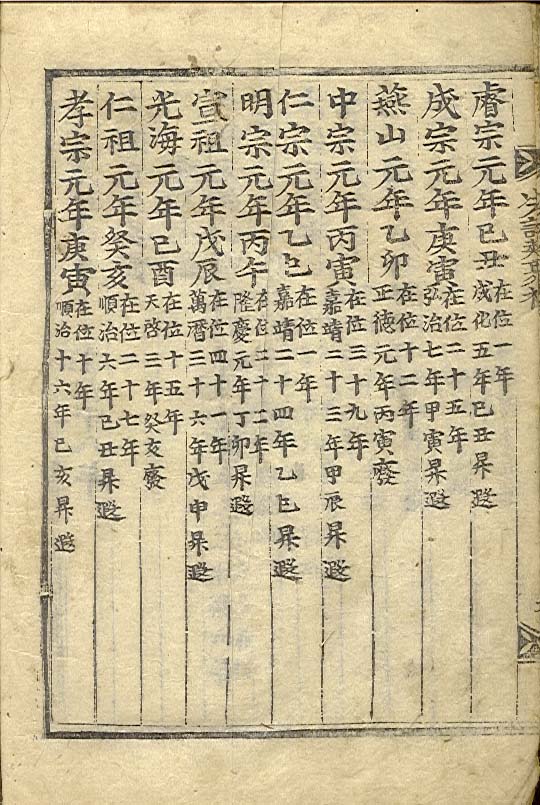 睿宗元年己丑在位一年成化五年己丑昇遐
成宗元年庚寅在位二十五年弘治七年甲寅昇遐
燕山元年乙卯在位十二年正德元年丙寅廢
中宗元年丙寅在位三十九年嘉靖二十三年甲辰昇遐
仁宗元年乙巳在位一年嘉靖二十四年乙巳昇遐
明宗元年丙午在位二十二年隆慶元年丁卯昇遐
宣祖元年戊辰在位四十一年萬曆三十六年戊申昇遐
光海元年己酉在位十五年天啓三年癸亥廢
仁祖元年癸亥在位二十七年順治六年己丑昇遐
孝宗元年庚寅在位十年順治十六年己亥昇遐